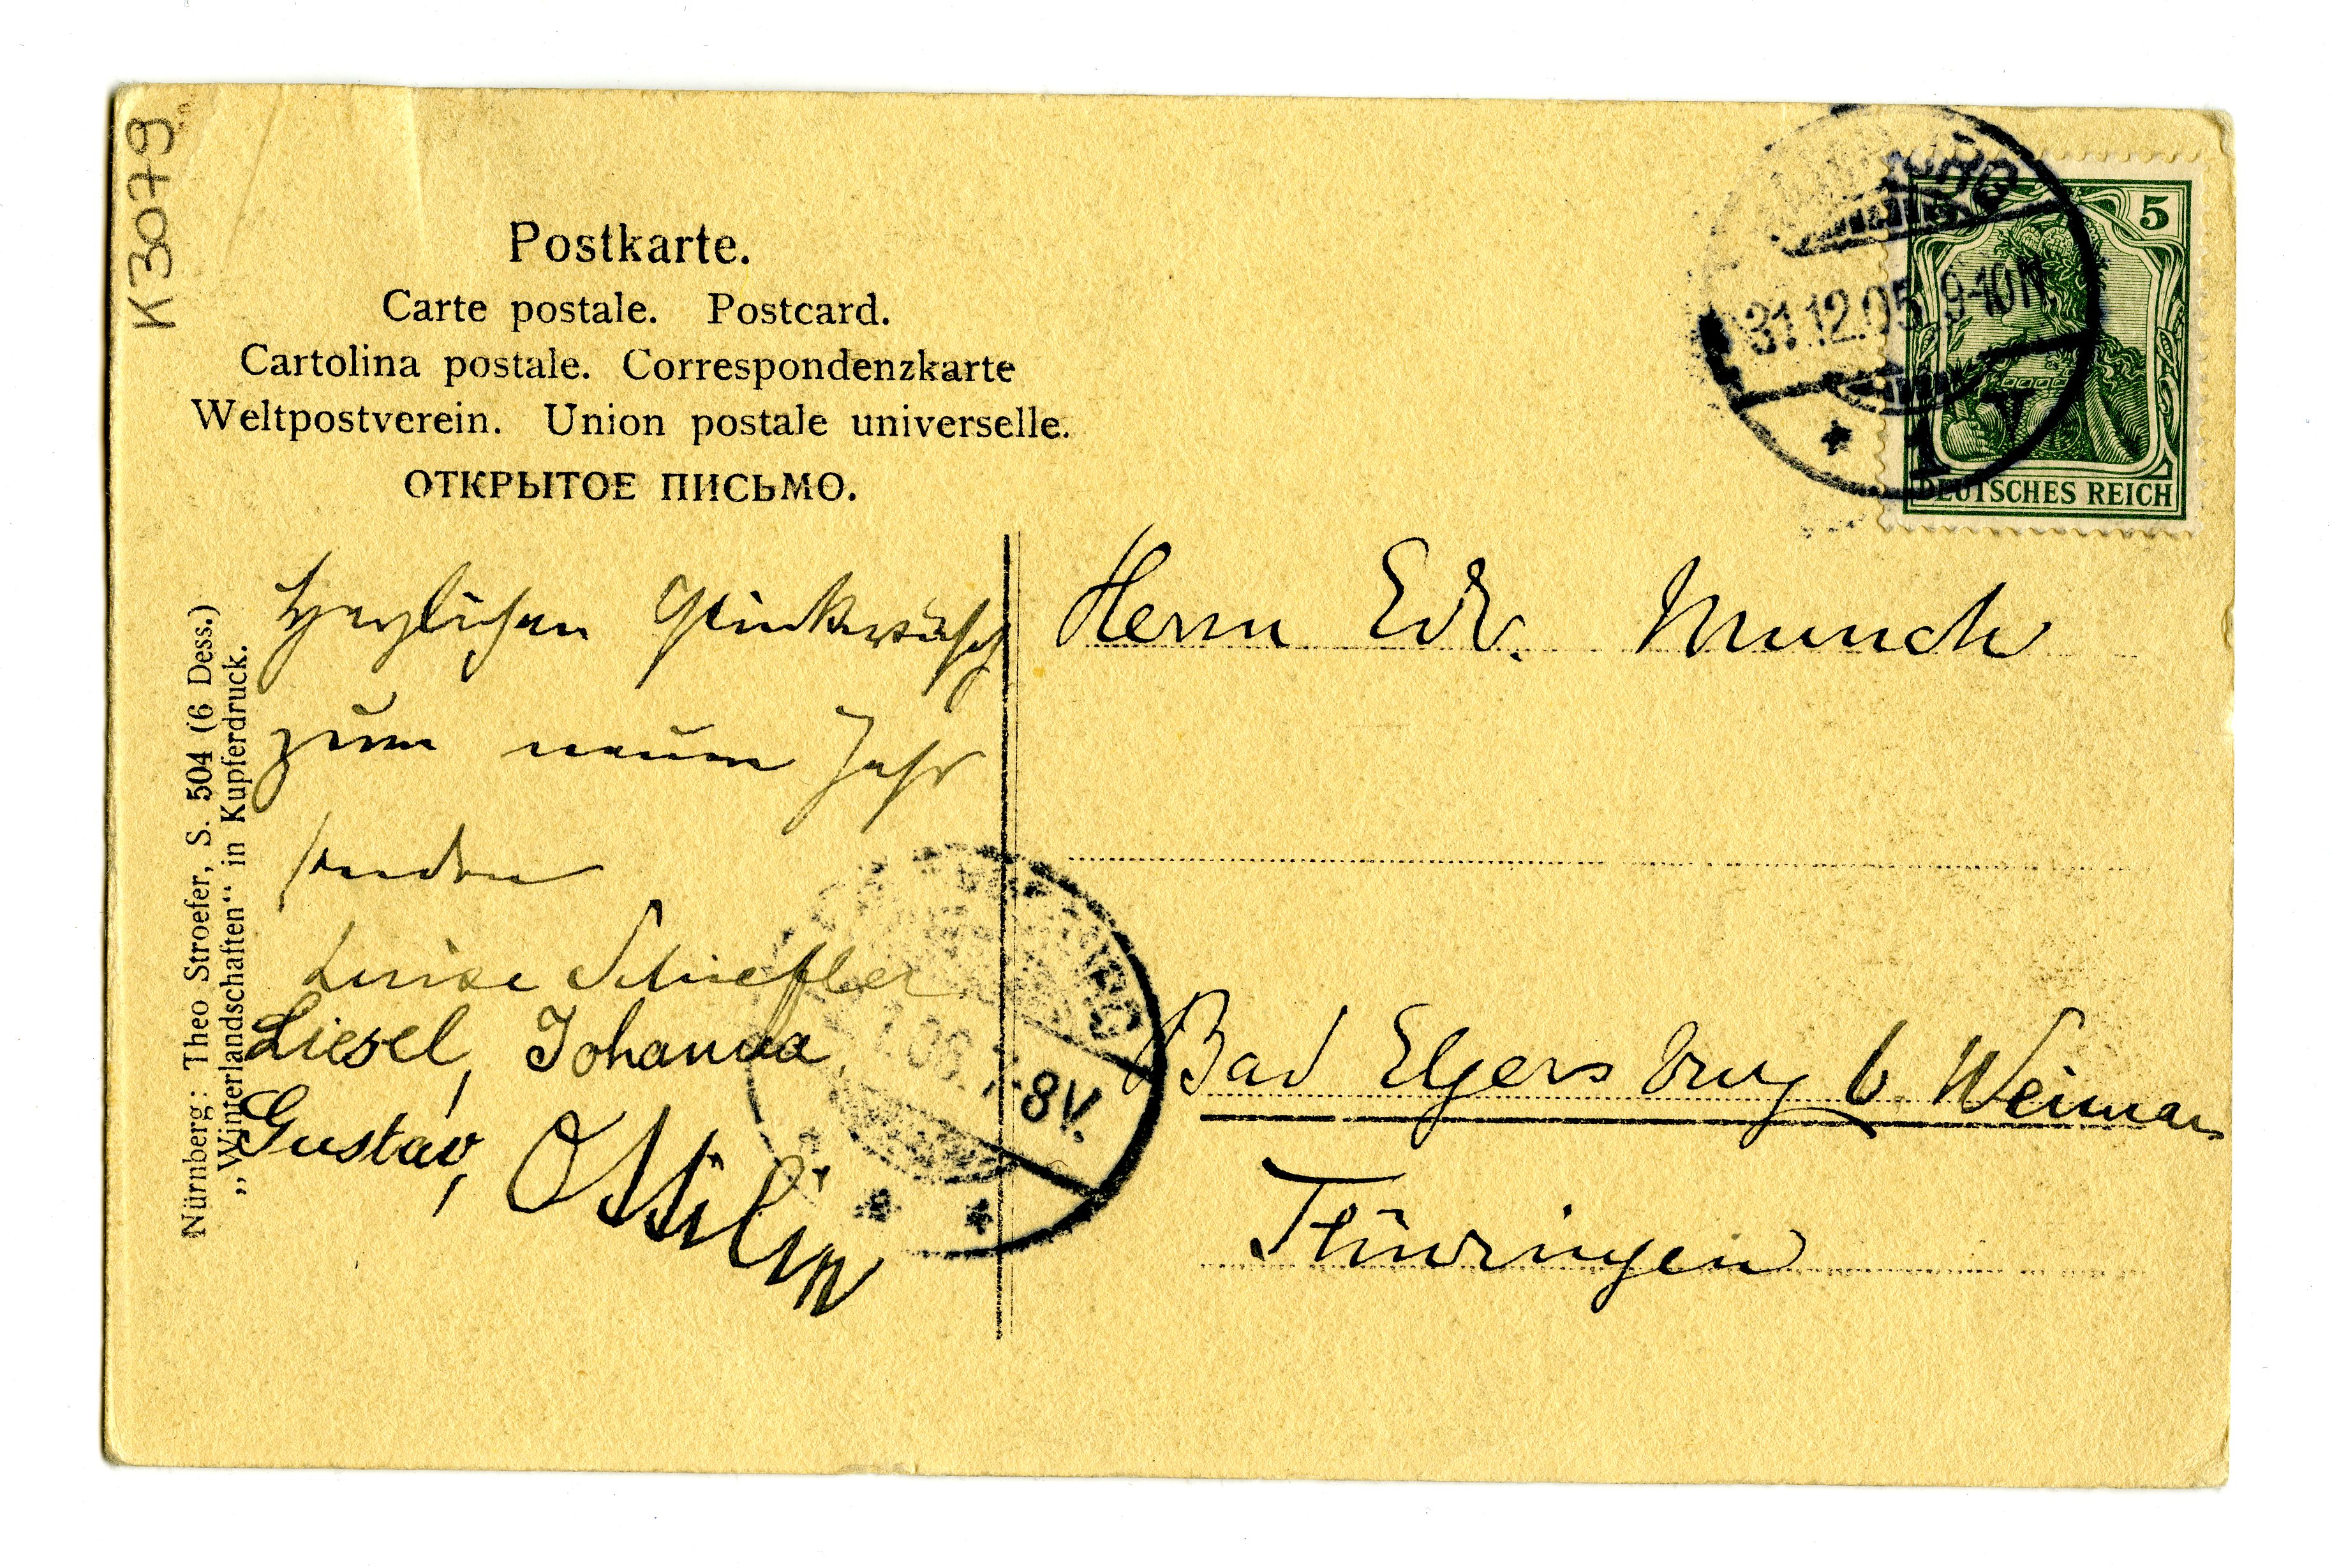 K3079
Postkarte.
Carte postale. Postcard.
Cartolina postale. Correspondenzkarte
Weltpostverein. Union postale universelle.
ОТКРЫТОЕ ПИСЬМО.
31.12.05. 9-10N.
1 V
5
DEUTSCHES REICH
Herzlichen Glückwunsch
zum neuen Jahr
senden
Luise Schiefler
Liesel, Johanna,
Gustav, Ottilie
Herrn Edv. Munch
Bad Elgersburg b. Weimar
Thüringen
1.06. 7-8V.
Nürnberg: Theo Stroefer, S. 504 (6 Dess.)
„Winterlandschaften“ in Kupferdruck.